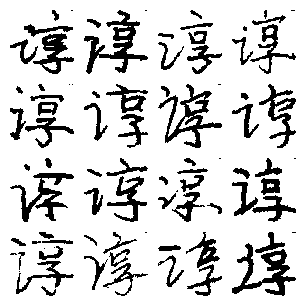 谆谆谆谆
谆谆谆谆
谆谆谆谆
谆谆谆谆